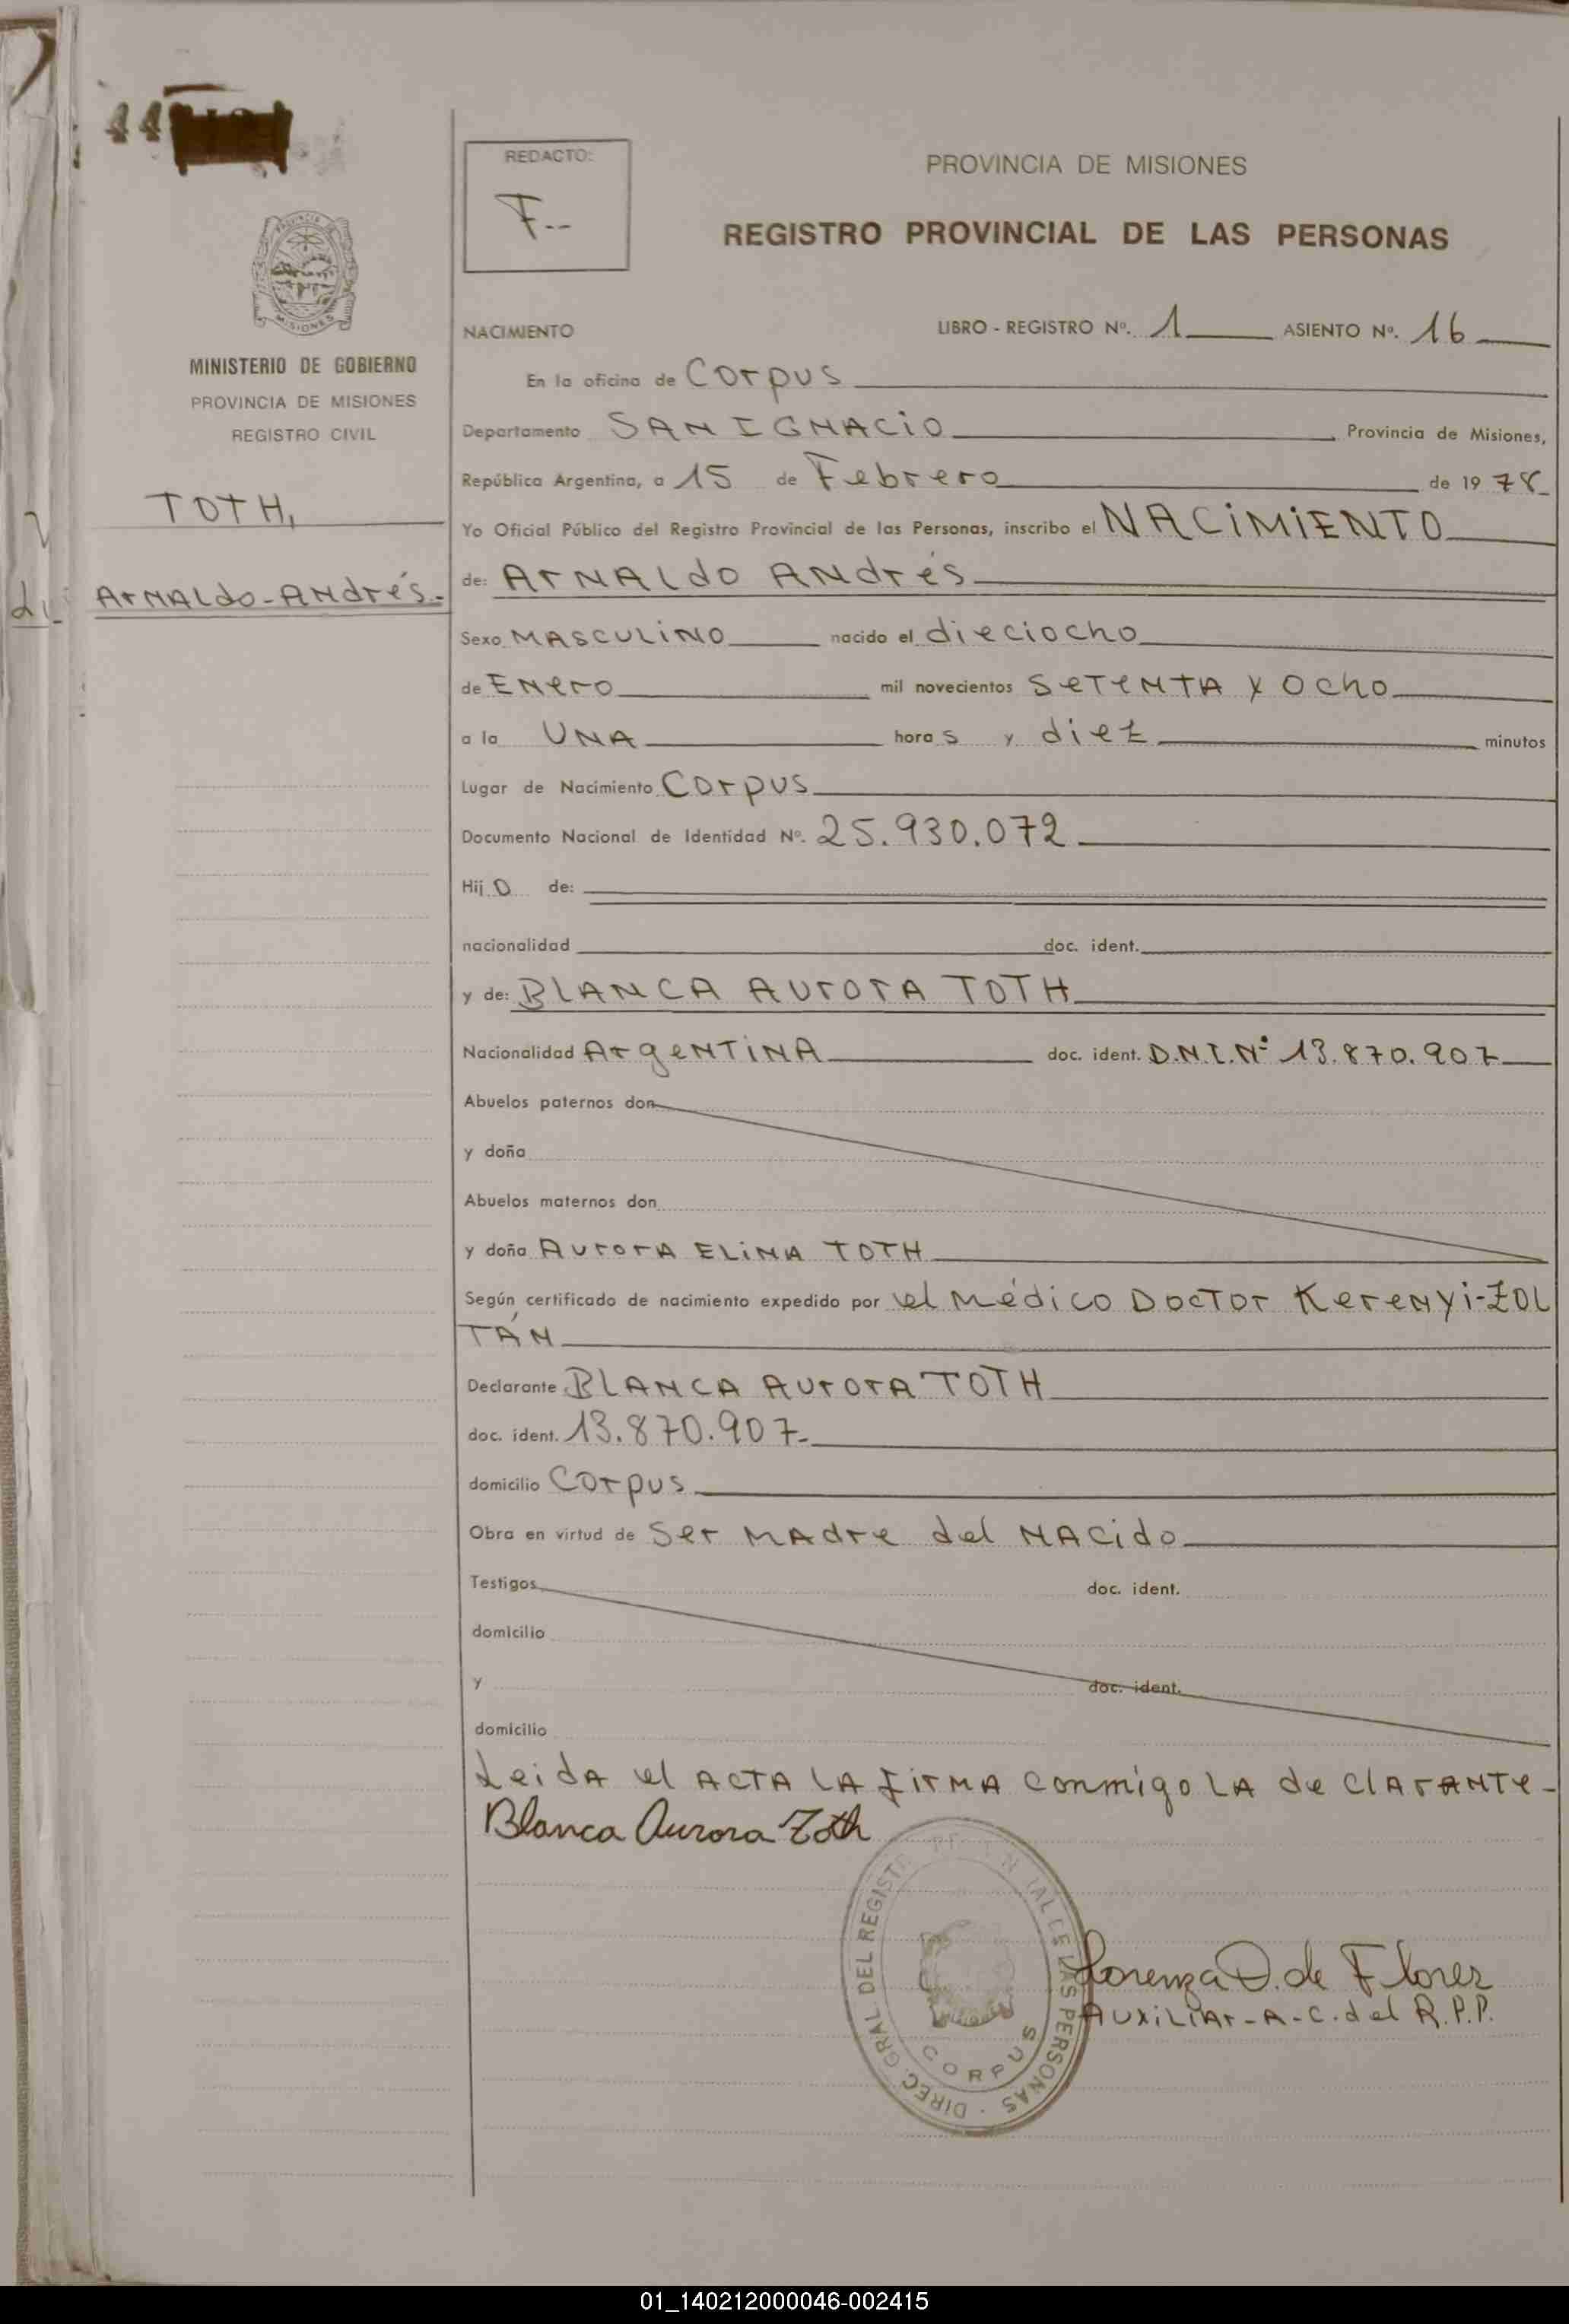 44
REDACTO:
F--
PROVINCIA DE MISIONES
REGISTRO PROVINCIAL DE LAS PERSONAS
MISIONES
MINISTERIO DE GOBIERNO
PROVINCIA DE MISIONES
REGISTRO CIVIL
TOTH,
ARNALdo-ANdrés.-
NACIMIENTO LIBRO - REGISTRO Nº. 1 ASIENTO Nº. 16
En la oficina de Corpus
Departamento SAN IGNACIO Provincia de Misiones,
República Argentina, a 15 de Febrero de 19 78
Yo Oficial Público del Registro Provincial de las Personas, inscribo el NACIMIENTO
de: ARNALdO ANdrés
Sexo MASCULINO nacido el dieciocho
de ENero mil novecientos SETENTA y Ocho
a la UNA hora s y diez minutos
Lugar de Nacimiento Corpus
Documento Nacional de Identidad Nº. 25.930.072
Hij O de:
nacionalidad doc. ident.
y de: BLANCA AUrOrA TOTH
Nacionalidad ArgeNTiNA doc. ident. D.N.I.Nº 13.870.907
Abuelos paternos don
y doña
Abuelos maternos don
y doña AUrOrA ELiNA TOTH
Según certificado de nacimiento expedido por el Médico Doctor Kerenyi-ZOL
TÁN
Declarante BLANCA AUrOrA TOTH
doc. ident. 13.870.907-
domicilio Corpus
Obra en virtud de Ser MAdre del NACido
Testigos doc. ident.
domicilio
y doc. ident.
domicilio
Leida el ACTA LA FirMA conmigo LA de ClArANTe-
Blanca Aurora Toth
DIREC. GRAL DEL REGIST LAS PERSONAS
CORPUS
Lorenza D. de Florez
AUXiLiAr-A-C.del R.P.P.
01_140212000046-002415